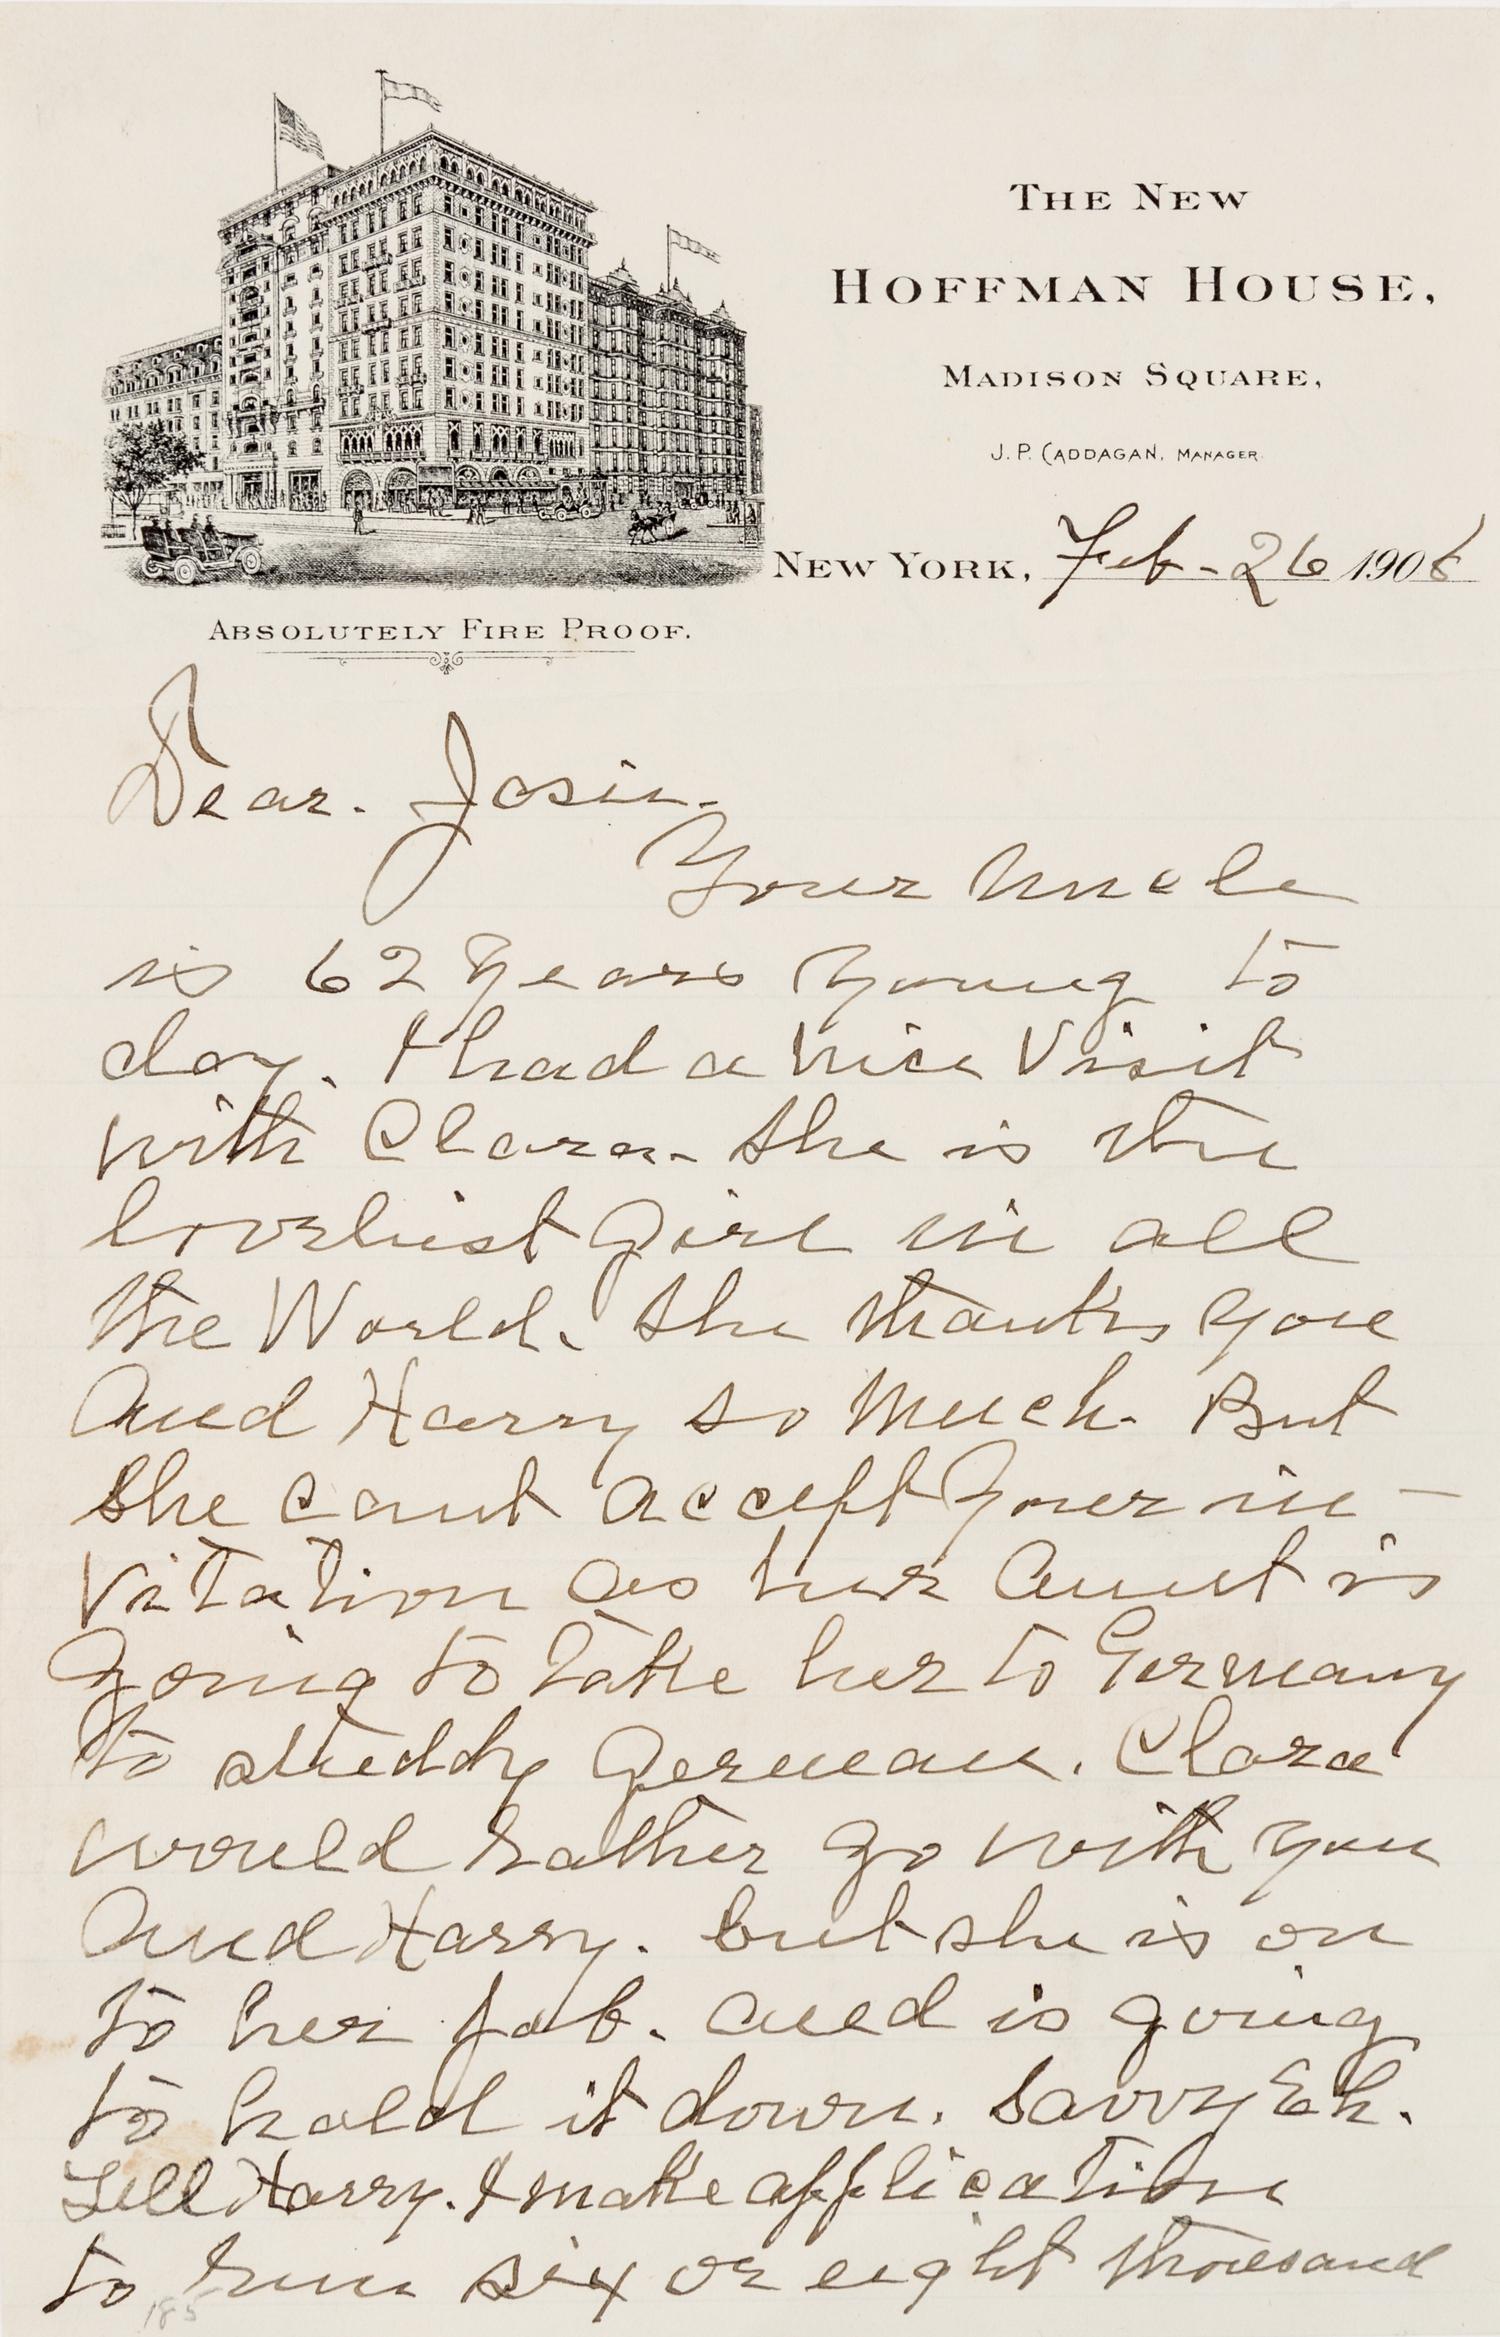 THE NEW
HOFFMAN HOUSE,
MADISON SQUARE,
J. P. CADDAGAN, MANAGER.
NEW YORK, Feb - 26 1908
ABSOLUTELY FIRE PROOF.
Dear. Josie.
Your Uncle
is 62 Years Young to
day. I had a nice Visit
with Clara. She is the
loveliest Girl in all
the World. She thanks you
And Harry so Much. But
She cant accept Your in-
vitation as her Aunt is
Going to take her to Germany
to studdy German. Clara
would rather go with you
And Harry. but she is on
to her job. and is going
to hold it down. Savvy Eh.
Tell Harry. I make application
to run six or eight thousand
185